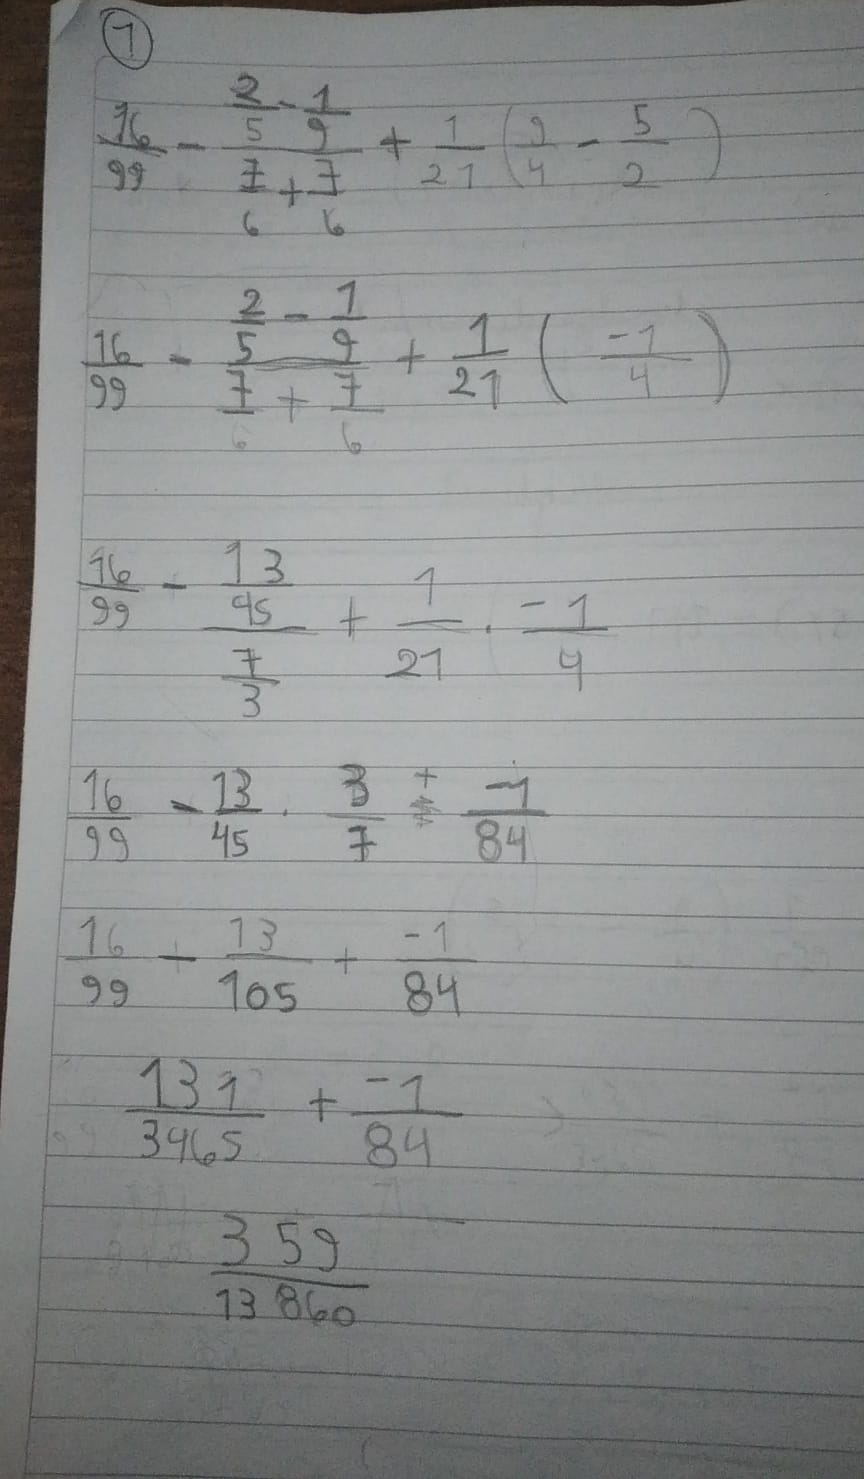 1
16/99 - (2/5 - 1/9)/(7/6 + 7/6) + 1/21 (9/4 - 5/2)
16/99 - (2/5 - 1/9)/(7/6 + 7/6) + 1/21 (-1/4)
16/99 - (13/45)/(7/3) + 1/21 · -1/4
16/99 - 13/45 · 3/7 + -1/84
16/99 - 13/105 + -1/84
131/3465 + -1/84
359/13860